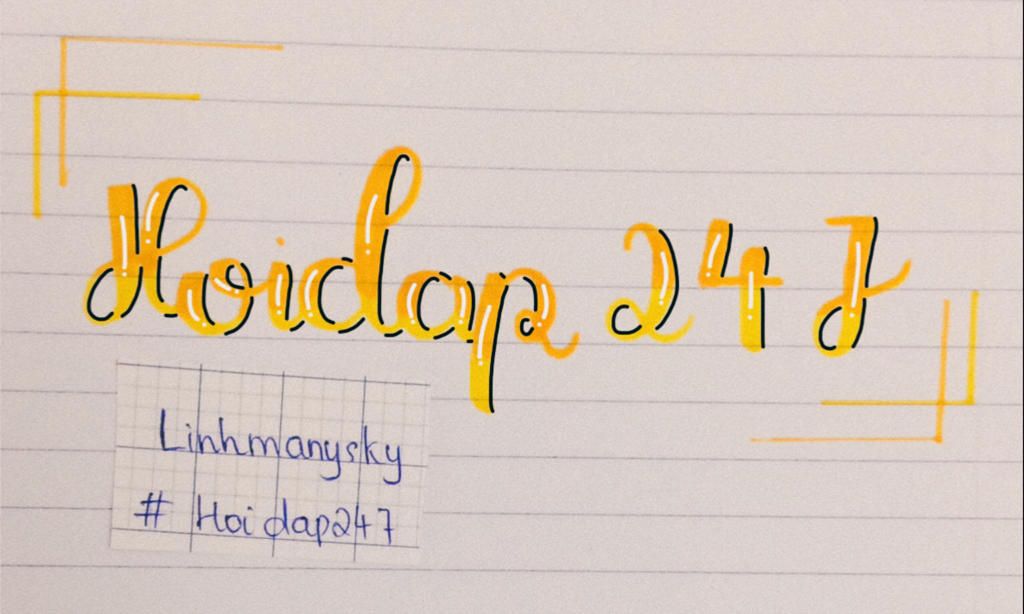 Hoidap 247
Linhmanysky
# Hoidap247